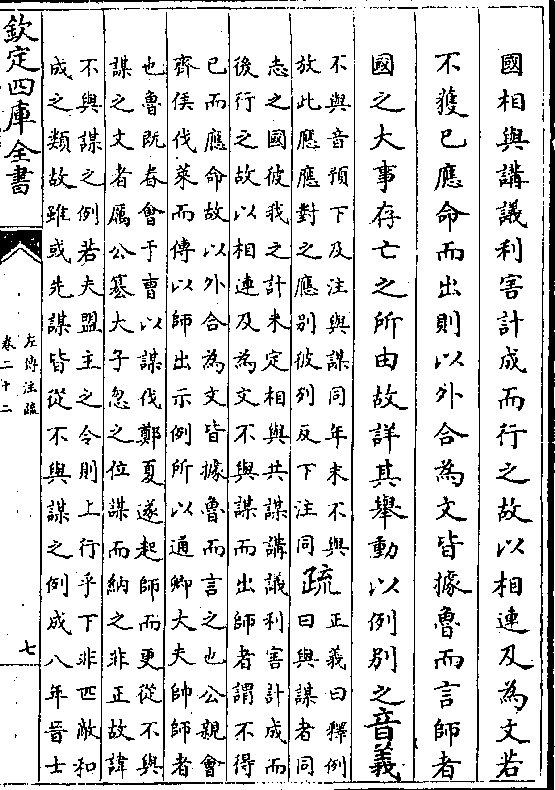 國相與講議利害計成而行之故以相連及為文若
不獲已應命而出則以外合為文皆據魯而言師者
國之大事存亡之所由故詳其舉動以例別之音義
不與音預下及注與謀同年末不與
放此應應對之應別彼列反下注同
疏
正義曰釋例
曰與謀者同
志之國彼我之計未定相與共謀講議利害計成而
後行之故以相連及為文不與謀而出師者謂不得
已而應命故以外合為文皆據魯而言之也公親會
齊侯伐萊而傳以師出示例所以通卿大夫帥師者
也魯既春會于曹以謀伐鄭夏遂起師而更從不與
謀之文者厲公簒大子忽之位謀而納之非正故諱
不與謀之例若夫盟主之令則上行乎下非匹敵和
成之類故雖或先謀皆從不與謀之例成八年晉士
欽定四庫全書
左傳注疏
卷二十二
七